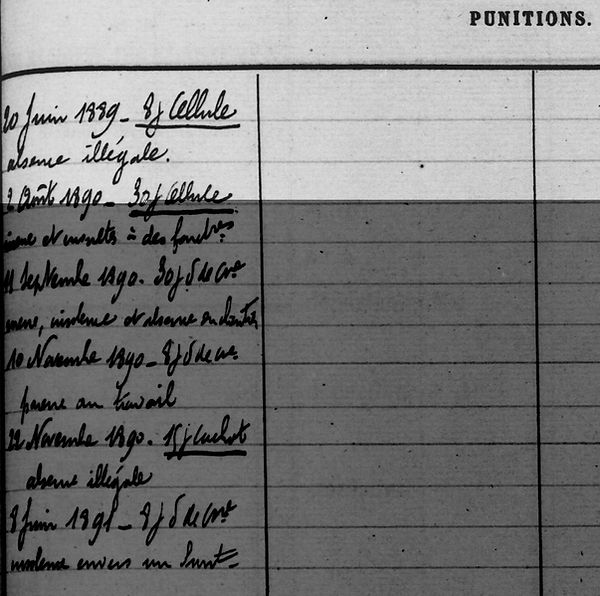 PUNITIONS.
20 Juin 1889 - 8 j Cellule
absence illégale.
2 Août 1890 - 30 j Cellule
et insultes à des fonctres
11 Septembre 1890. 30 j de
insolence et absence
10 Novembre 1890 - 8 j de
paresse au travail
22 Novembre 1890. 15 j Cachot
absence illégale
8 Juin 1891 - 8 j de
insolence envers un Surt